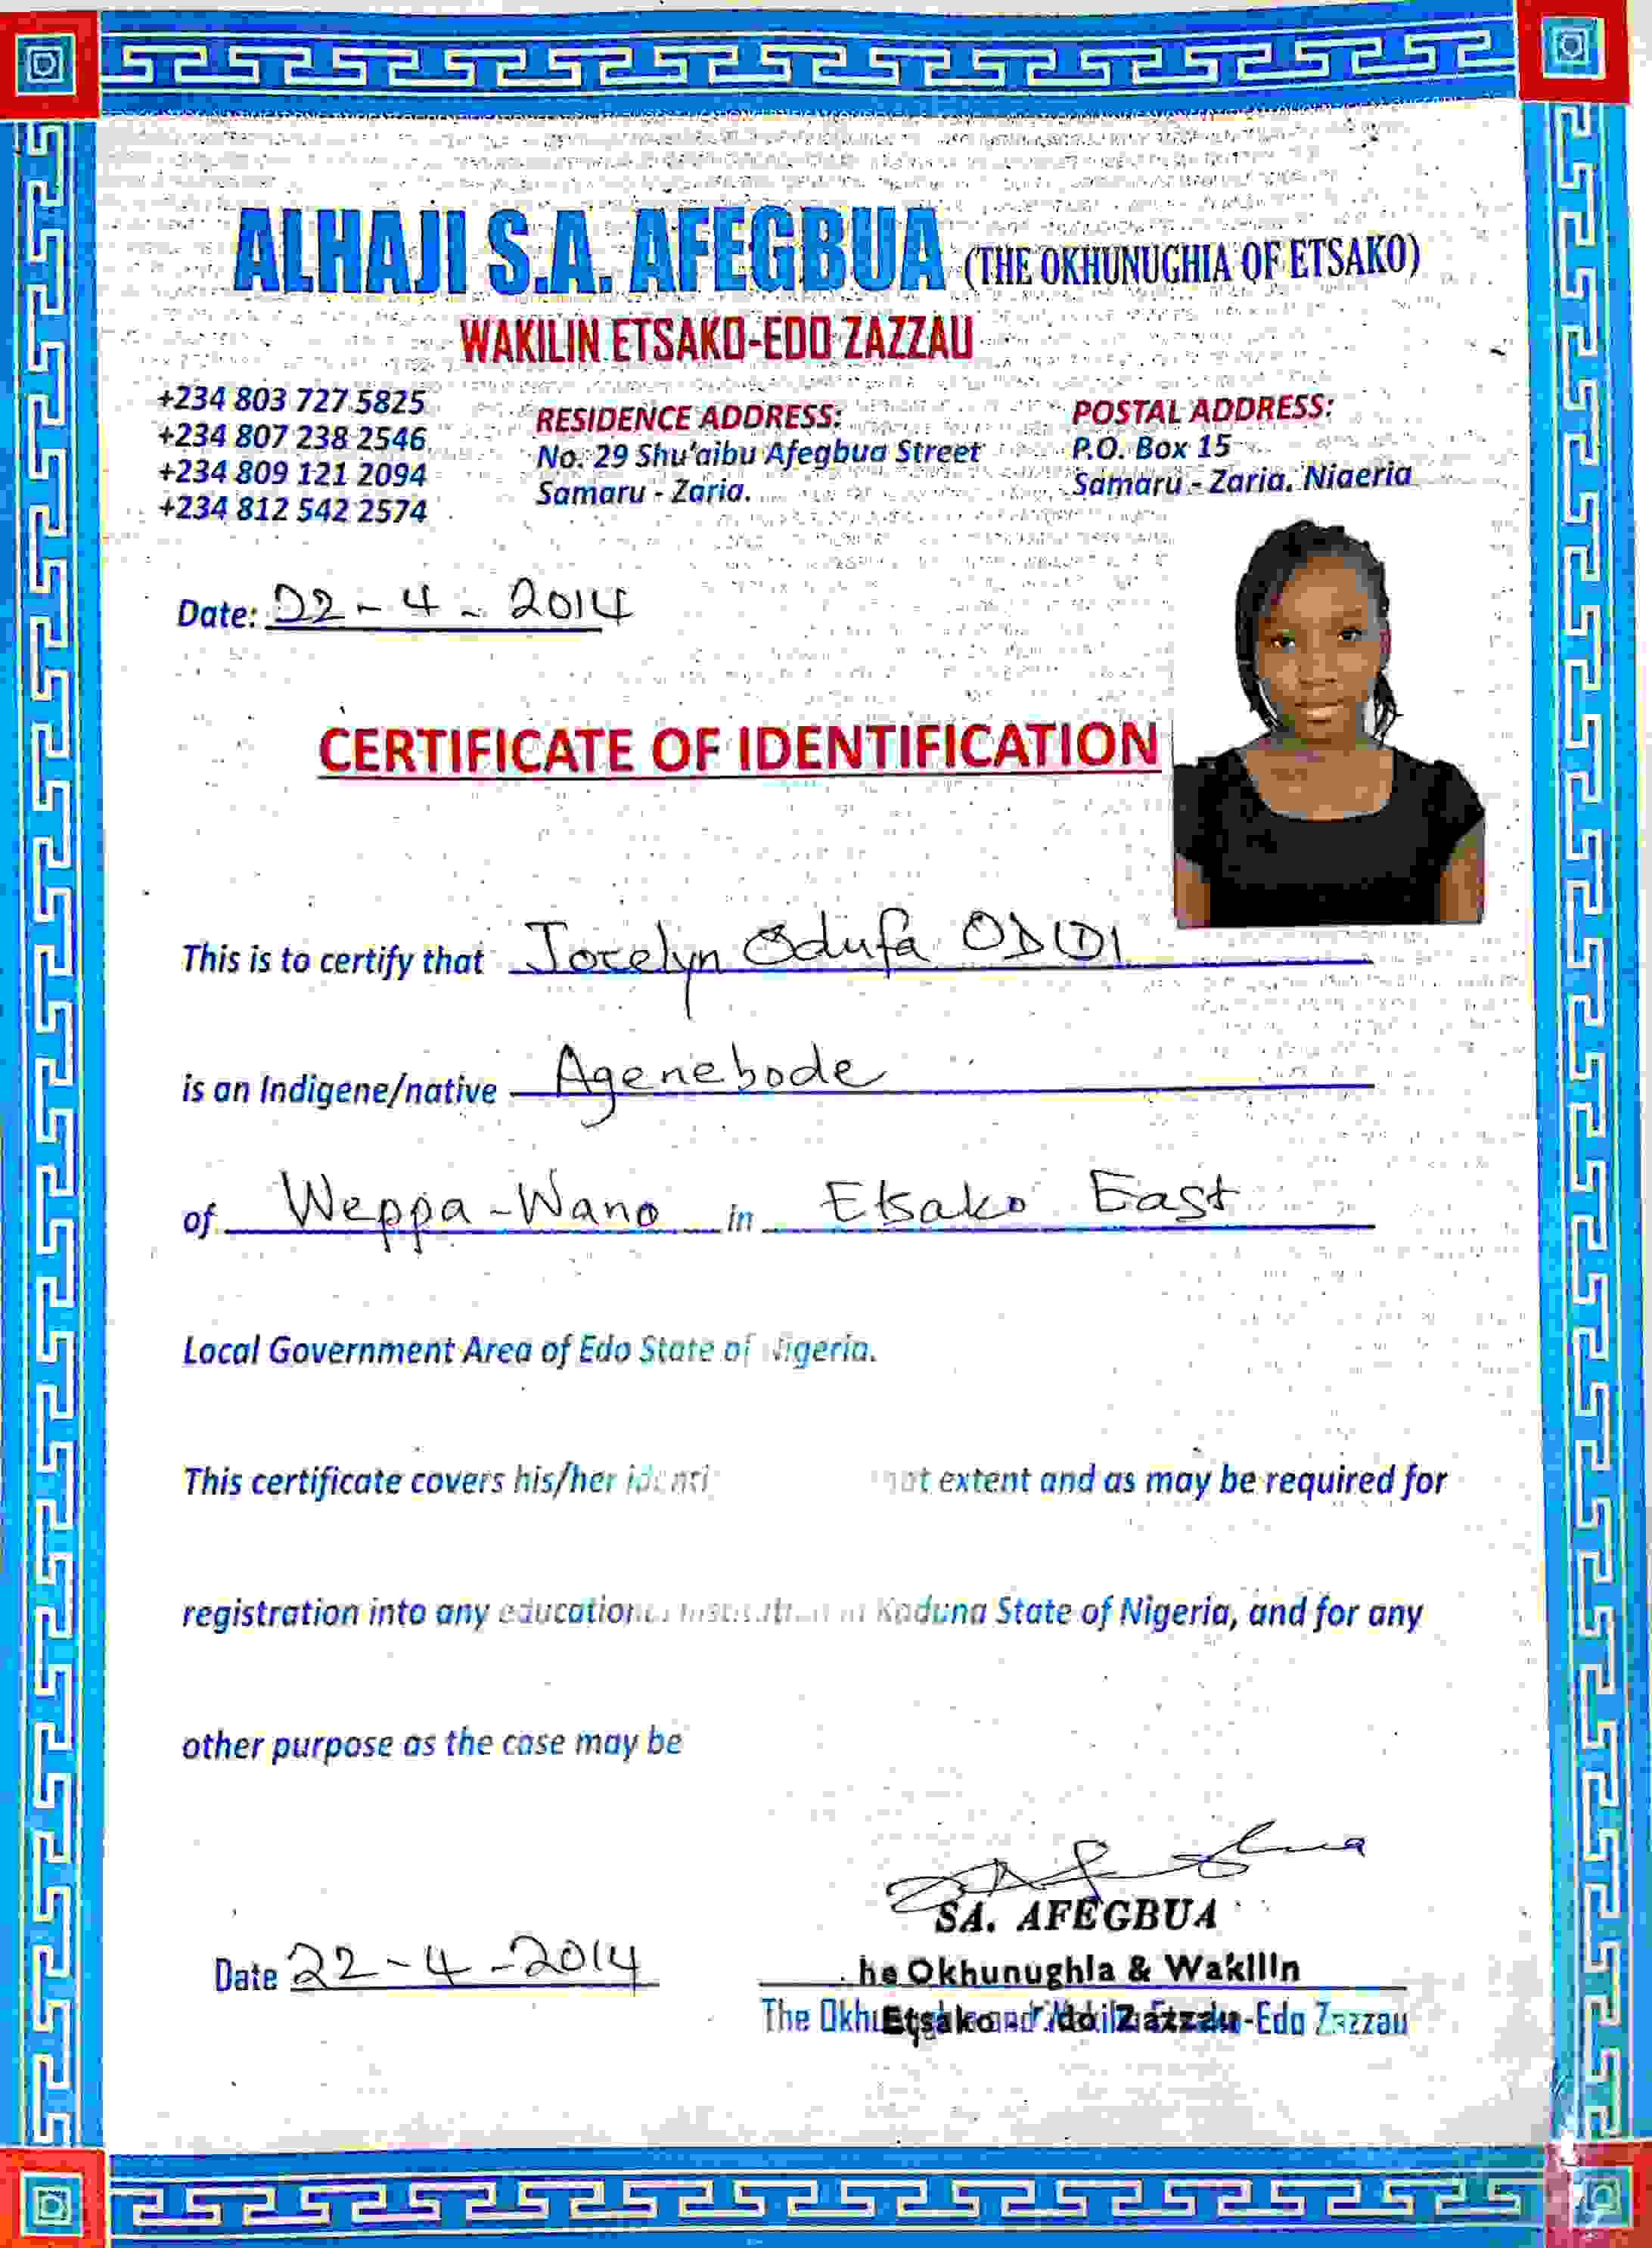 ALHAJI S.A. AFEGBUA (THE OKHUNUGHIA OF ETSAKO)
WAKILIN ETSAKO-EDO ZAZZAU
+234 803 727 5825
+234 807 238 2546
+234 809 121 2094
+234 812 542 2574
RESIDENCE ADDRESS:
No. 29 Shu'aibu Afegbua Street
Samaru - Zaria.
POSTAL ADDRESS:
P.O. Box 15
Samaru - Zaria, Nigeria
Date: 22-4-2014
CERTIFICATE OF IDENTIFICATION
This is to certify that Jocelyn Odufa ODIDI
is an Indigene/native Agenebode
of Weppa-Wano in Etsako East
Local Government Area of Edo State of Nigeria.
This certificate covers his/her extent and as may be required for
registration into any educational institution in Kaduna State of Nigeria, and for any
other purpose as the case may be
SA. AFEGBUA
he Okhunughia & Wakilin
Etsako - Zazzau
The -Edo Zazzau
Date 22-4-2014